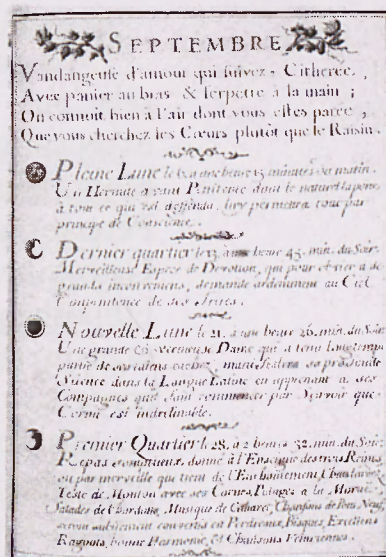 SEPTEMBRE
Vandangeuse d'amour qui suivez Citherée,
Avec panier au bras & serpette à la main ;
On connoit bien à l'air dont vous estes parée,
Que vous cherchez les Cœurs plutôt que le Raisin.
Pleine Lune le a une heure 15 minutes du matin.
Un Hermite a vant Penitence dont le naturel
à tout ce qui est deffendu, luy permettra tout par
principe de Conscience.
Dernier quartier le 13 à une heure 43. min. du Soir
Merveilleuse Espece de Devotion, qui pour obvier a de
grands inconveniens, demande ardemment au Ciel
l'impenitence de ses
Nouvelle Lune le 21. a un heure 26. min. du Soir
Une grande & Dame qui a tenu longtemps
partie de ses talens cachez, manifestera sa profonde
Science dans la Langue Latine en apprenant a ses
Compagnes que sans commencer par Sçavoir que
Cornu est indeclinable.
Premier Quartier le 28. à 2 heures 32. min. du Soir
Repas somptueux donné à l'Enseigne des trois Reines
ou par merveille qui tient de l'Enchantement,
Teste de Mouton avec ses Cornes, Potages a la Moruë
Salades de Chardons, Musique de Chansons du Pont Neuf,
seront subitement convertis en Perdreaux, Bisques, Excellens
Ragouts, bonne Harmonie, & Chansons